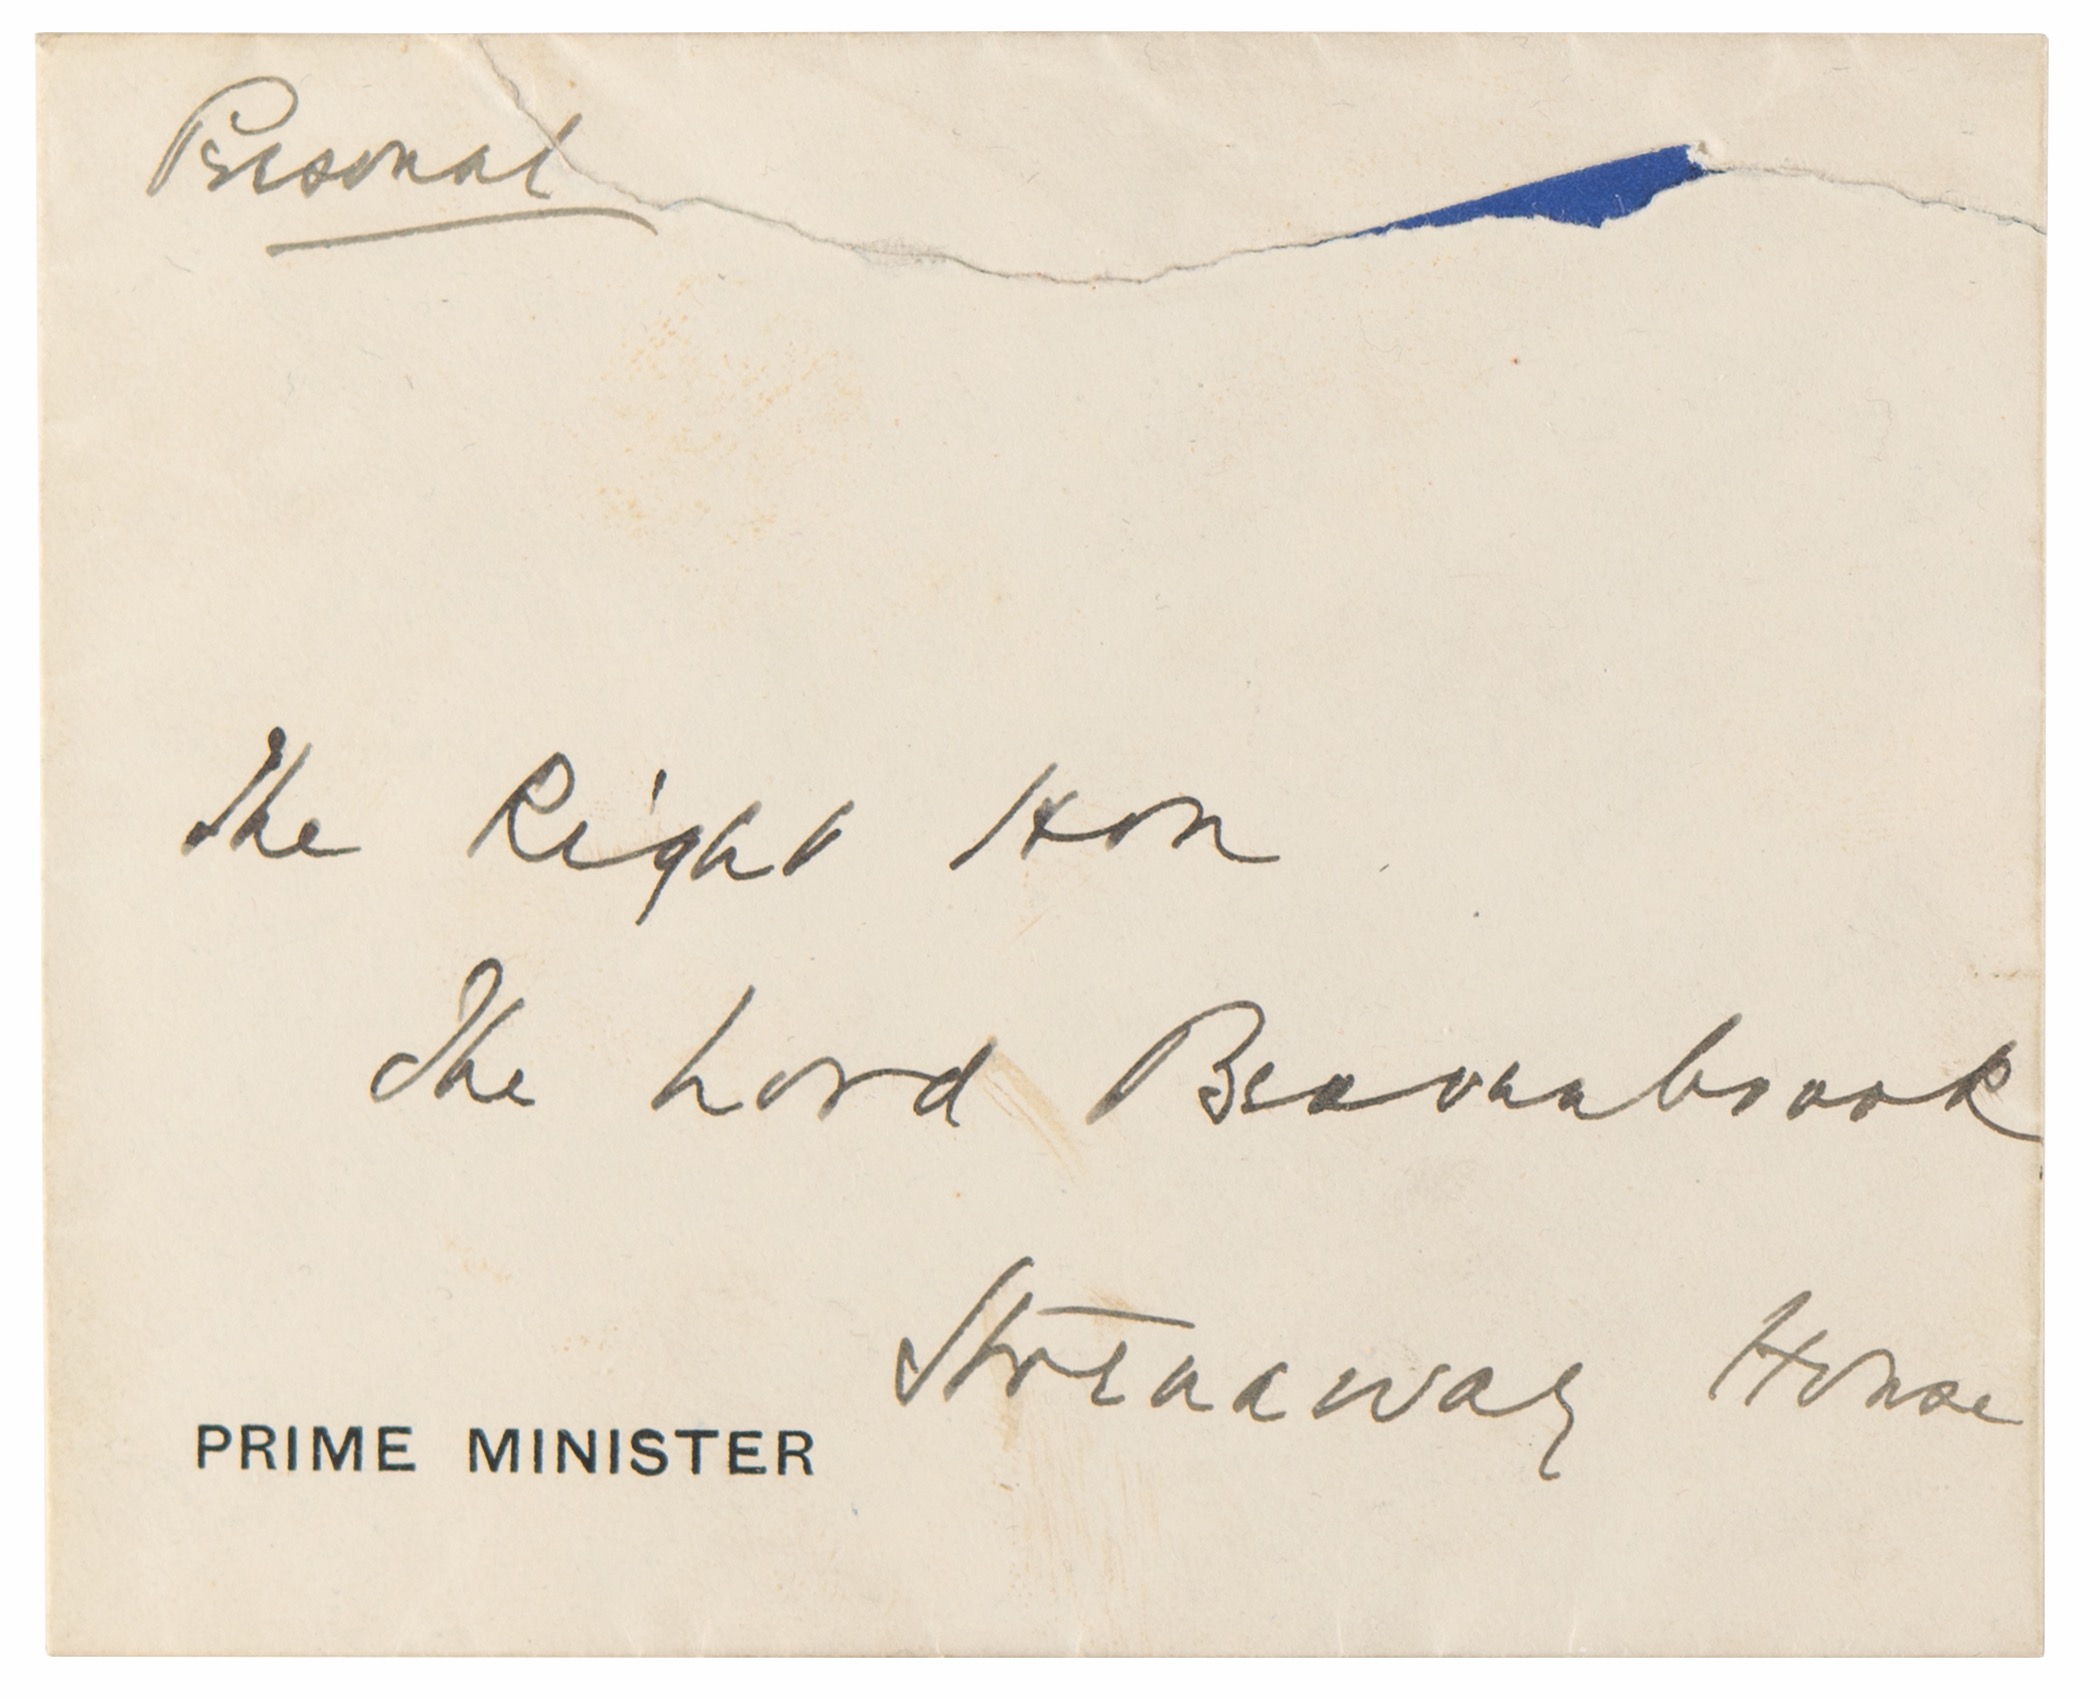 Personal
The Right Hon.
The Lord Beaverbrook
Stornaway House
PRIME MINISTER